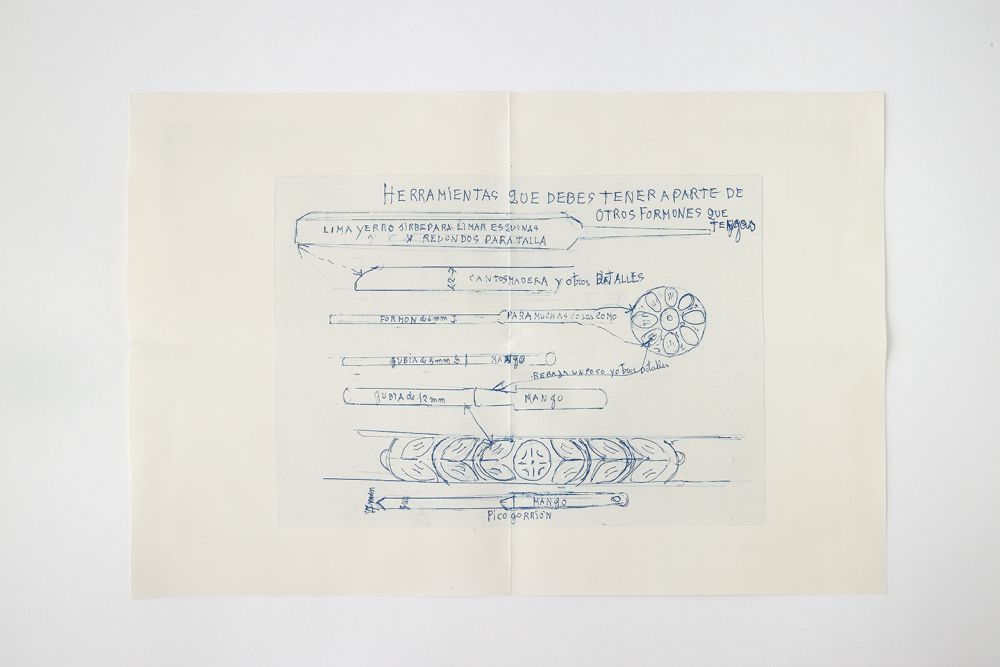 HERRAMIENTAS QUE DEBES TENER APARTE DE
OTROS FORMONES QUE
TENgas
LIMA Y ERRO SIRBE PARA LIMAR ESQUINAS
Y REDONDOS PARA TALLA
CANTOS MADERA y otros DETALLES
FORMON de 6 mm
PARA MUCHAS COSAS COMO
gUBIA de 5 mm
MANgo
REBAJA UN POCO y otros detalles
gUBIA de 12 mm
MANgO
MANgO
PICO gORRIÓN